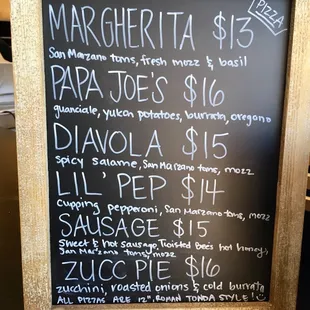 PIZZA
MARGHERITA $13
San Marzano toms, fresh mozz & basil
PAPA JOE'S $16
guanciale, yukon potatoes, burrata, oregano
DIAVOLA $15
spicy salame, San Marzano toms, mozz
LIL' PEP $14
cupping pepperoni, San Marzano toms, mozz
SAUSAGE $15
Sweet & hot sausage, Twisted Bee's hot honey,
San Marzano toms, mozz
ZUCC PIE $16
zucchini, roasted onions & cold burrata
ALL PIZZAS ARE 12", ROMAN TONDA STYLE!